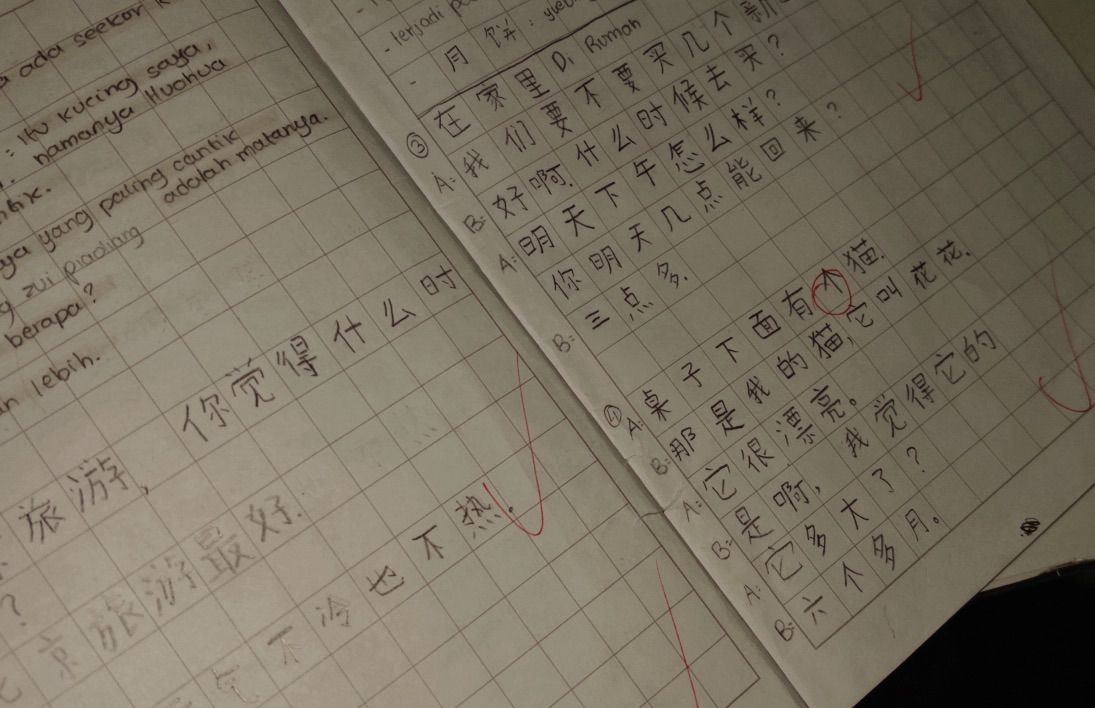 ada seekor
: Itu kucing saya,
namanya Huahua
yang paling cantik
adalah matanya.
zui piaoliang
berapa?
lebih.
你觉得什么时
旅游,
?
京旅游最好.
气不冷也不热.
- terjadi
- 月饼 :
③ 在家里 Di Rumah
A: 我们要不要买几个新
B: 好啊.什么时候去买?
A: 明天下午怎么样?
你明天几点能回来?
B: 三点多.
④ A: 桌子下面有个猫.
B: 那是我的猫,它叫花花.
A: 它很漂亮。
B: 是啊, 我觉得它的
A: 它多大了?
B: 六个多月。